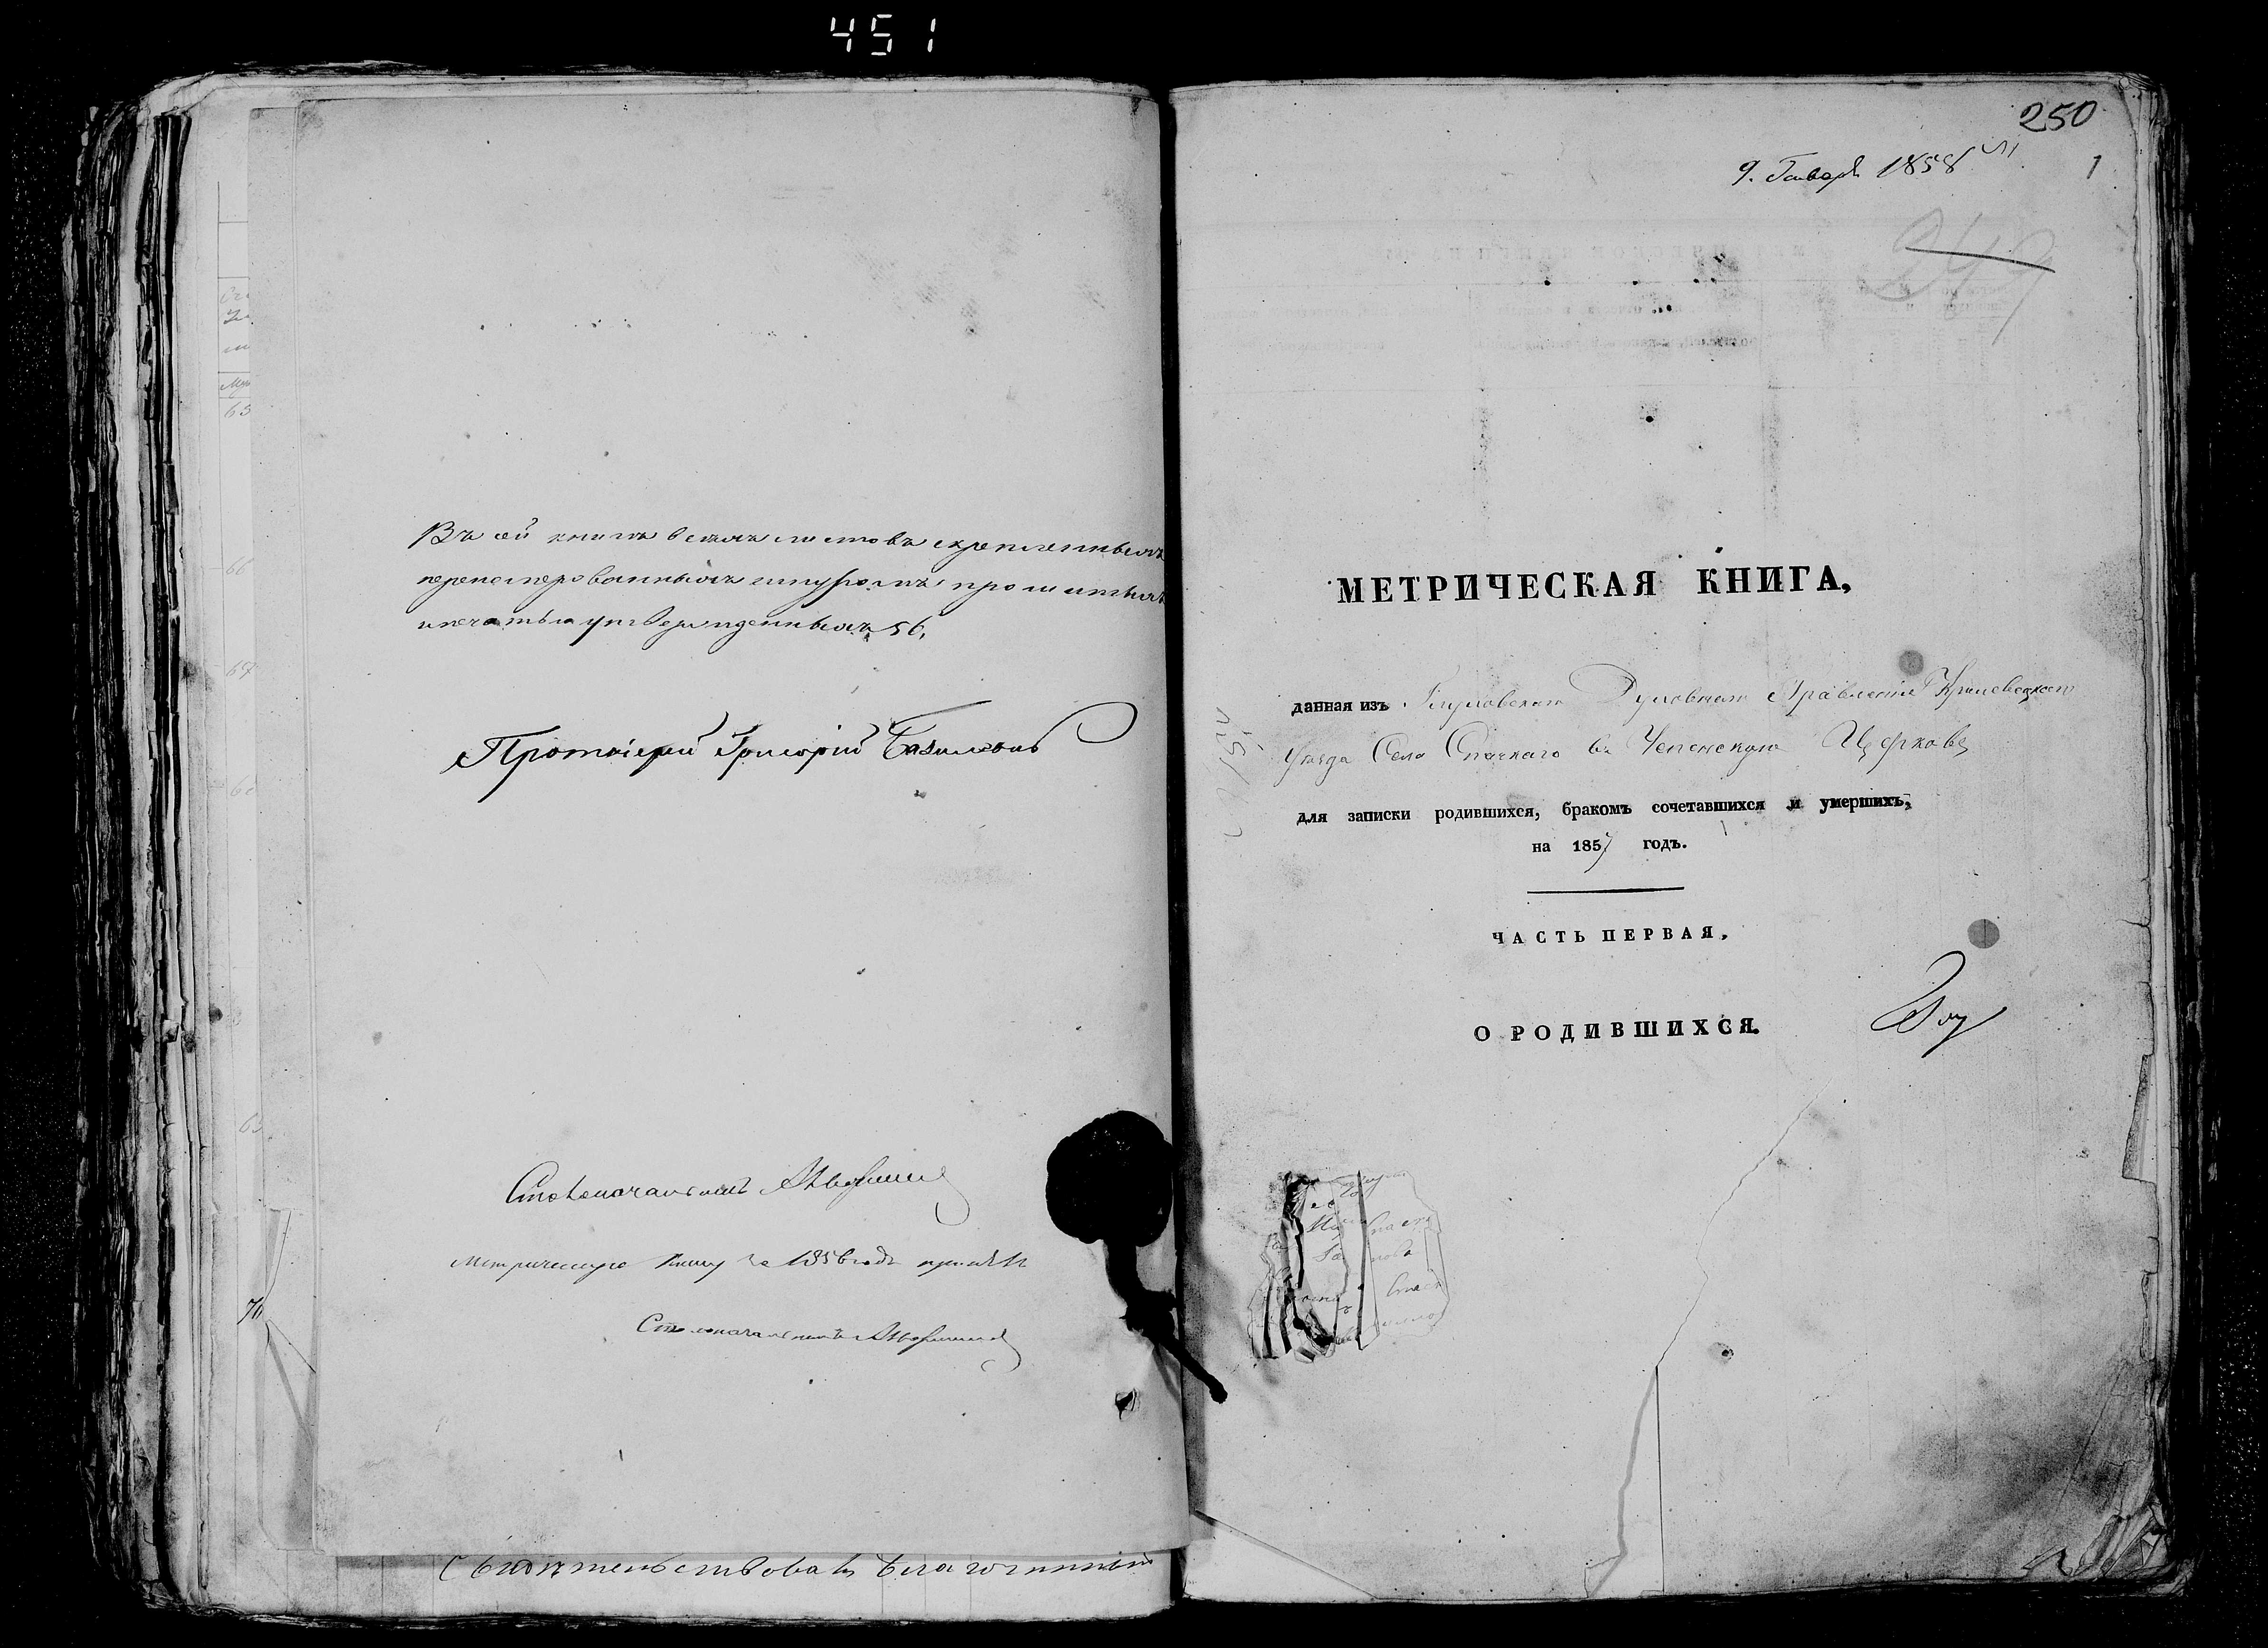 451
Въ сей книгѣ всѣхъ листовъ скрепленныхъ
перенумерованныхъ шнуромъ прошитыхъ
и печатью утвержденныхъ 56,
Протоіерей Григорій Базилевичъ
Столоначальникъ
Метрическую книгу за 1856 годъ принялъ
Столоначальникъ
70
Свидѣтельствовалъ Благочинный
250
9. Января 1858
1
249
МЕТРИЧЕСКАЯ КНИГА,
данная изъ Глуховскаго Духовнаго Правленія Кролевецкаго
Уезда Села Спаскаго въ Успенскую Церковь
для записки родившихся, бракомъ сочетавшихся и умершихъ,
на 1857 годъ.
ЧАСТЬ ПЕРВАЯ,
О РОДИВШИХСЯ.